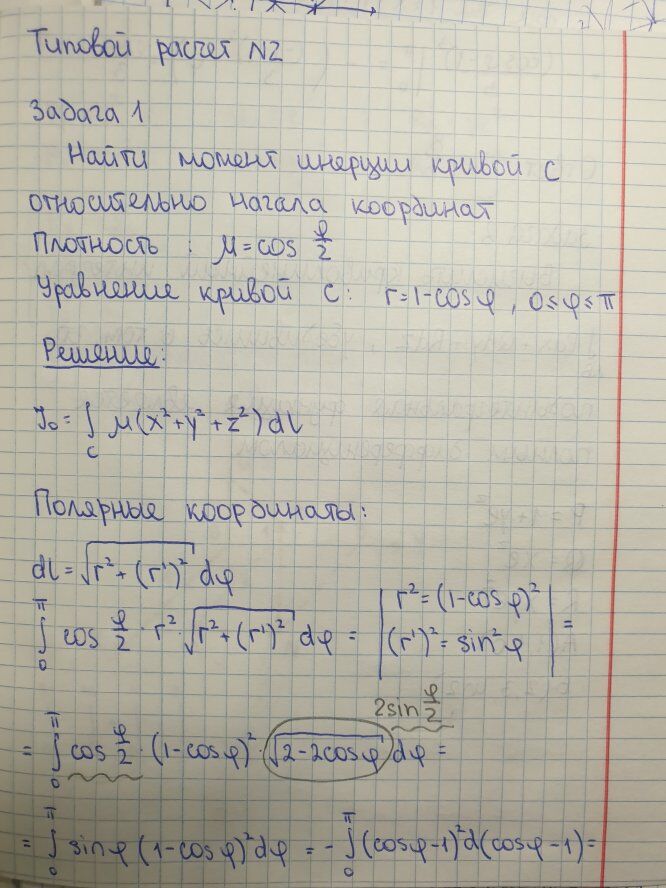 Типовой расчет N2
Задача 1
Найти момент инерции кривой C
относительно начала координат
Плотность : μ = cos φ/2
Уравнение кривой C: r = 1 - cosφ, 0 ≤ φ ≤ π
Решение:
J₀ = ∫_C μ(x² + y² + z²) dl
Полярные координаты:
dl = √(r² + (r')²) dφ
∫_0^π cos φ/2 · r² · √(r² + (r')²) dφ = | r² = (1 - cosφ)² (r')² = sin²φ | =
2sin φ/2
= ∫_0^π cos φ/2 · (1 - cosφ)² · √(2 - 2cosφ) dφ =
= ∫_0^π sinφ (1 - cosφ)² dφ = - ∫_0^π (cosφ - 1)² d(cosφ - 1) =